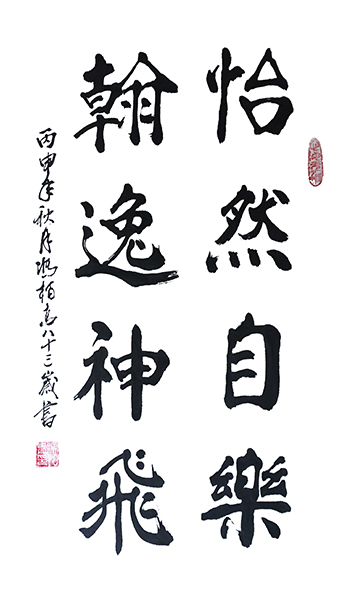 怡然自樂
翰逸神飛
丙申年秋月馮柏高八十三歲書